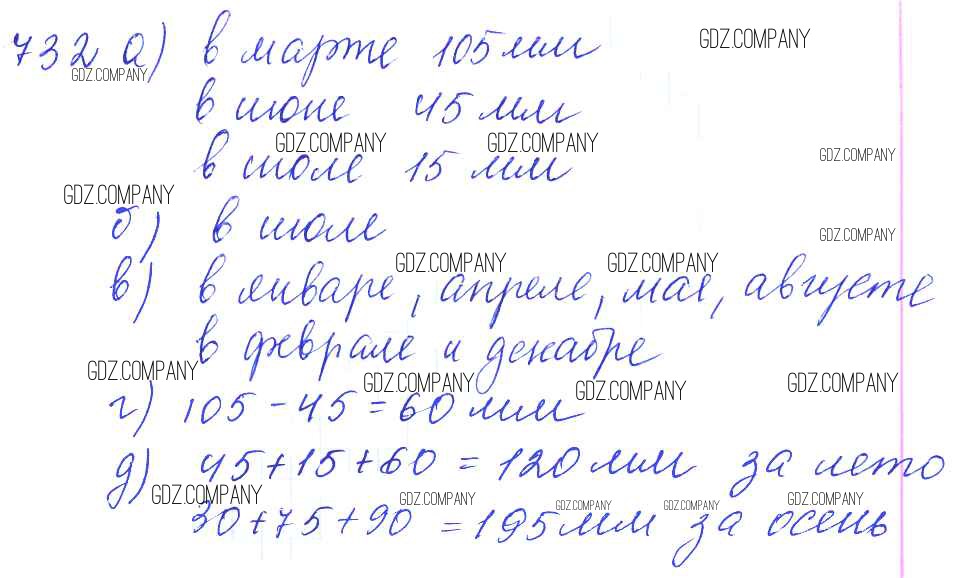 732 а) в марте 105 мм
GDZ.COMPANY
GDZ.COMPANY
в июне 45 мм
GDZ.COMPANY GDZ.COMPANY
GDZ.COMPANY
в июле 15 мм
GDZ.COMPANY
б) в июле
GDZ.COMPANY
GDZ.COMPANY GDZ.COMPANY
в) в январе, апреле, мае, августе
в феврале и декабре
GDZ.COMPANY GDZ.COMPANY GDZ.COMPANY GDZ.COMPANY
г) 105 - 45 = 60 мм
д) 45 + 15 + 60 = 120 мм за лето
GDZ.COMPANY GDZ.COMPANY GDZ.COMPANY GDZ.COMPANY GDZ.COMPANY
30 + 75 + 90 = 195 мм за осень